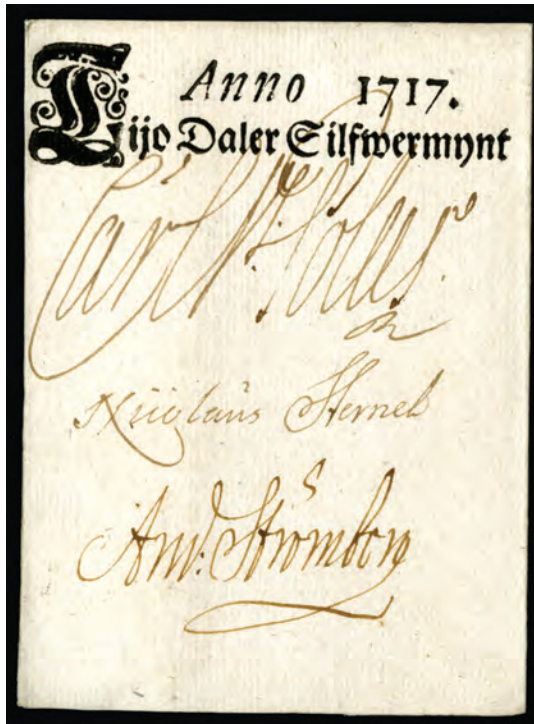 Anno 1717.
Tijo Daler Silfwermynt
Carl
Nicolaus Sternel
And: Strömberg